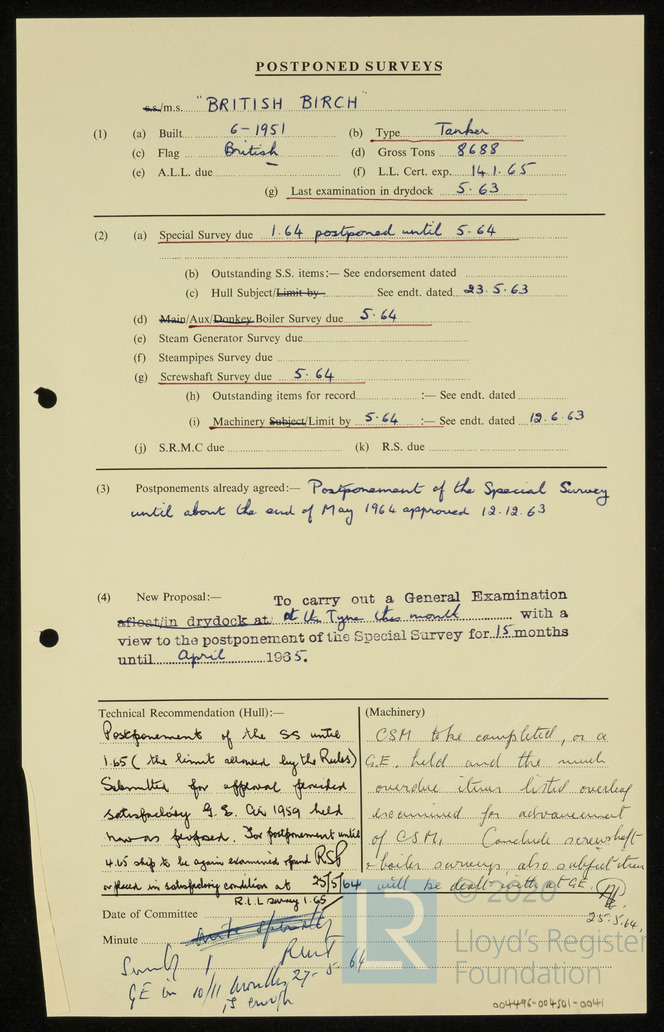 POSTPONED SURVEYS
s.s./m.s. "BRITISH BIRCH"
(1) (a) Built 6-1951 (b) Type Tanker
(c) Flag British (d) Gross Tons 8688
(e) A.L.L. due (f) L.L. Cert. exp. 14.1.65
(g) Last examination in drydock 5.63
(2) (a) Special Survey due 1.64 postponed until 5.64
(b) Outstanding S.S. items:— See endorsement dated
(c) Hull Subject/Limit by See endt. dated 23.5.63
(d) Main/Aux/Donkey Boiler Survey due 5.64
(e) Steam Generator Survey due
(f) Steampipes Survey due
(g) Screwshaft Survey due 5.64
(h) Outstanding items for record :— See endt. dated
(i) Machinery Subject/Limit by 5.64 :— See endt. dated 12.6.63
(j) S.R.M.C due (k) R.S. due
(3) Postponements already agreed:— Postponement of the Special Survey
until about the end of May 1964 approved 12.12.63
(4) New Proposal:— To carry out a General Examination
afloat/in drydock at at the Tyne this month with a
view to the postponement of the Special Survey for 15 months
until April 1965.
Technical Recommendation (Hull):—
Postponement of the SS until
1.65 (the limit allowed by the Rules)
Submitted for approval provided
satisfactory G.E. Cir 1959 held
now as proposed. For postponement until
4.65 ship to be again examined & found RSP
or placed in satisfactory condition at 25/5/64
R.L.L survey 1.65
(Machinery)
CSM to be completed, or a
G.E. held and the much
overdue items listed overleaf
examined for advancement
of CSM. Conclude screwshaft
& boiler surveys, also subject items
will be dealt with at GE.
25.5.64
Date of Committee
Minute
27-5-64
GE in 10/11 months
is enough
© 2020
LR
Lloyd's Register
Foundation
004496-004501-0041